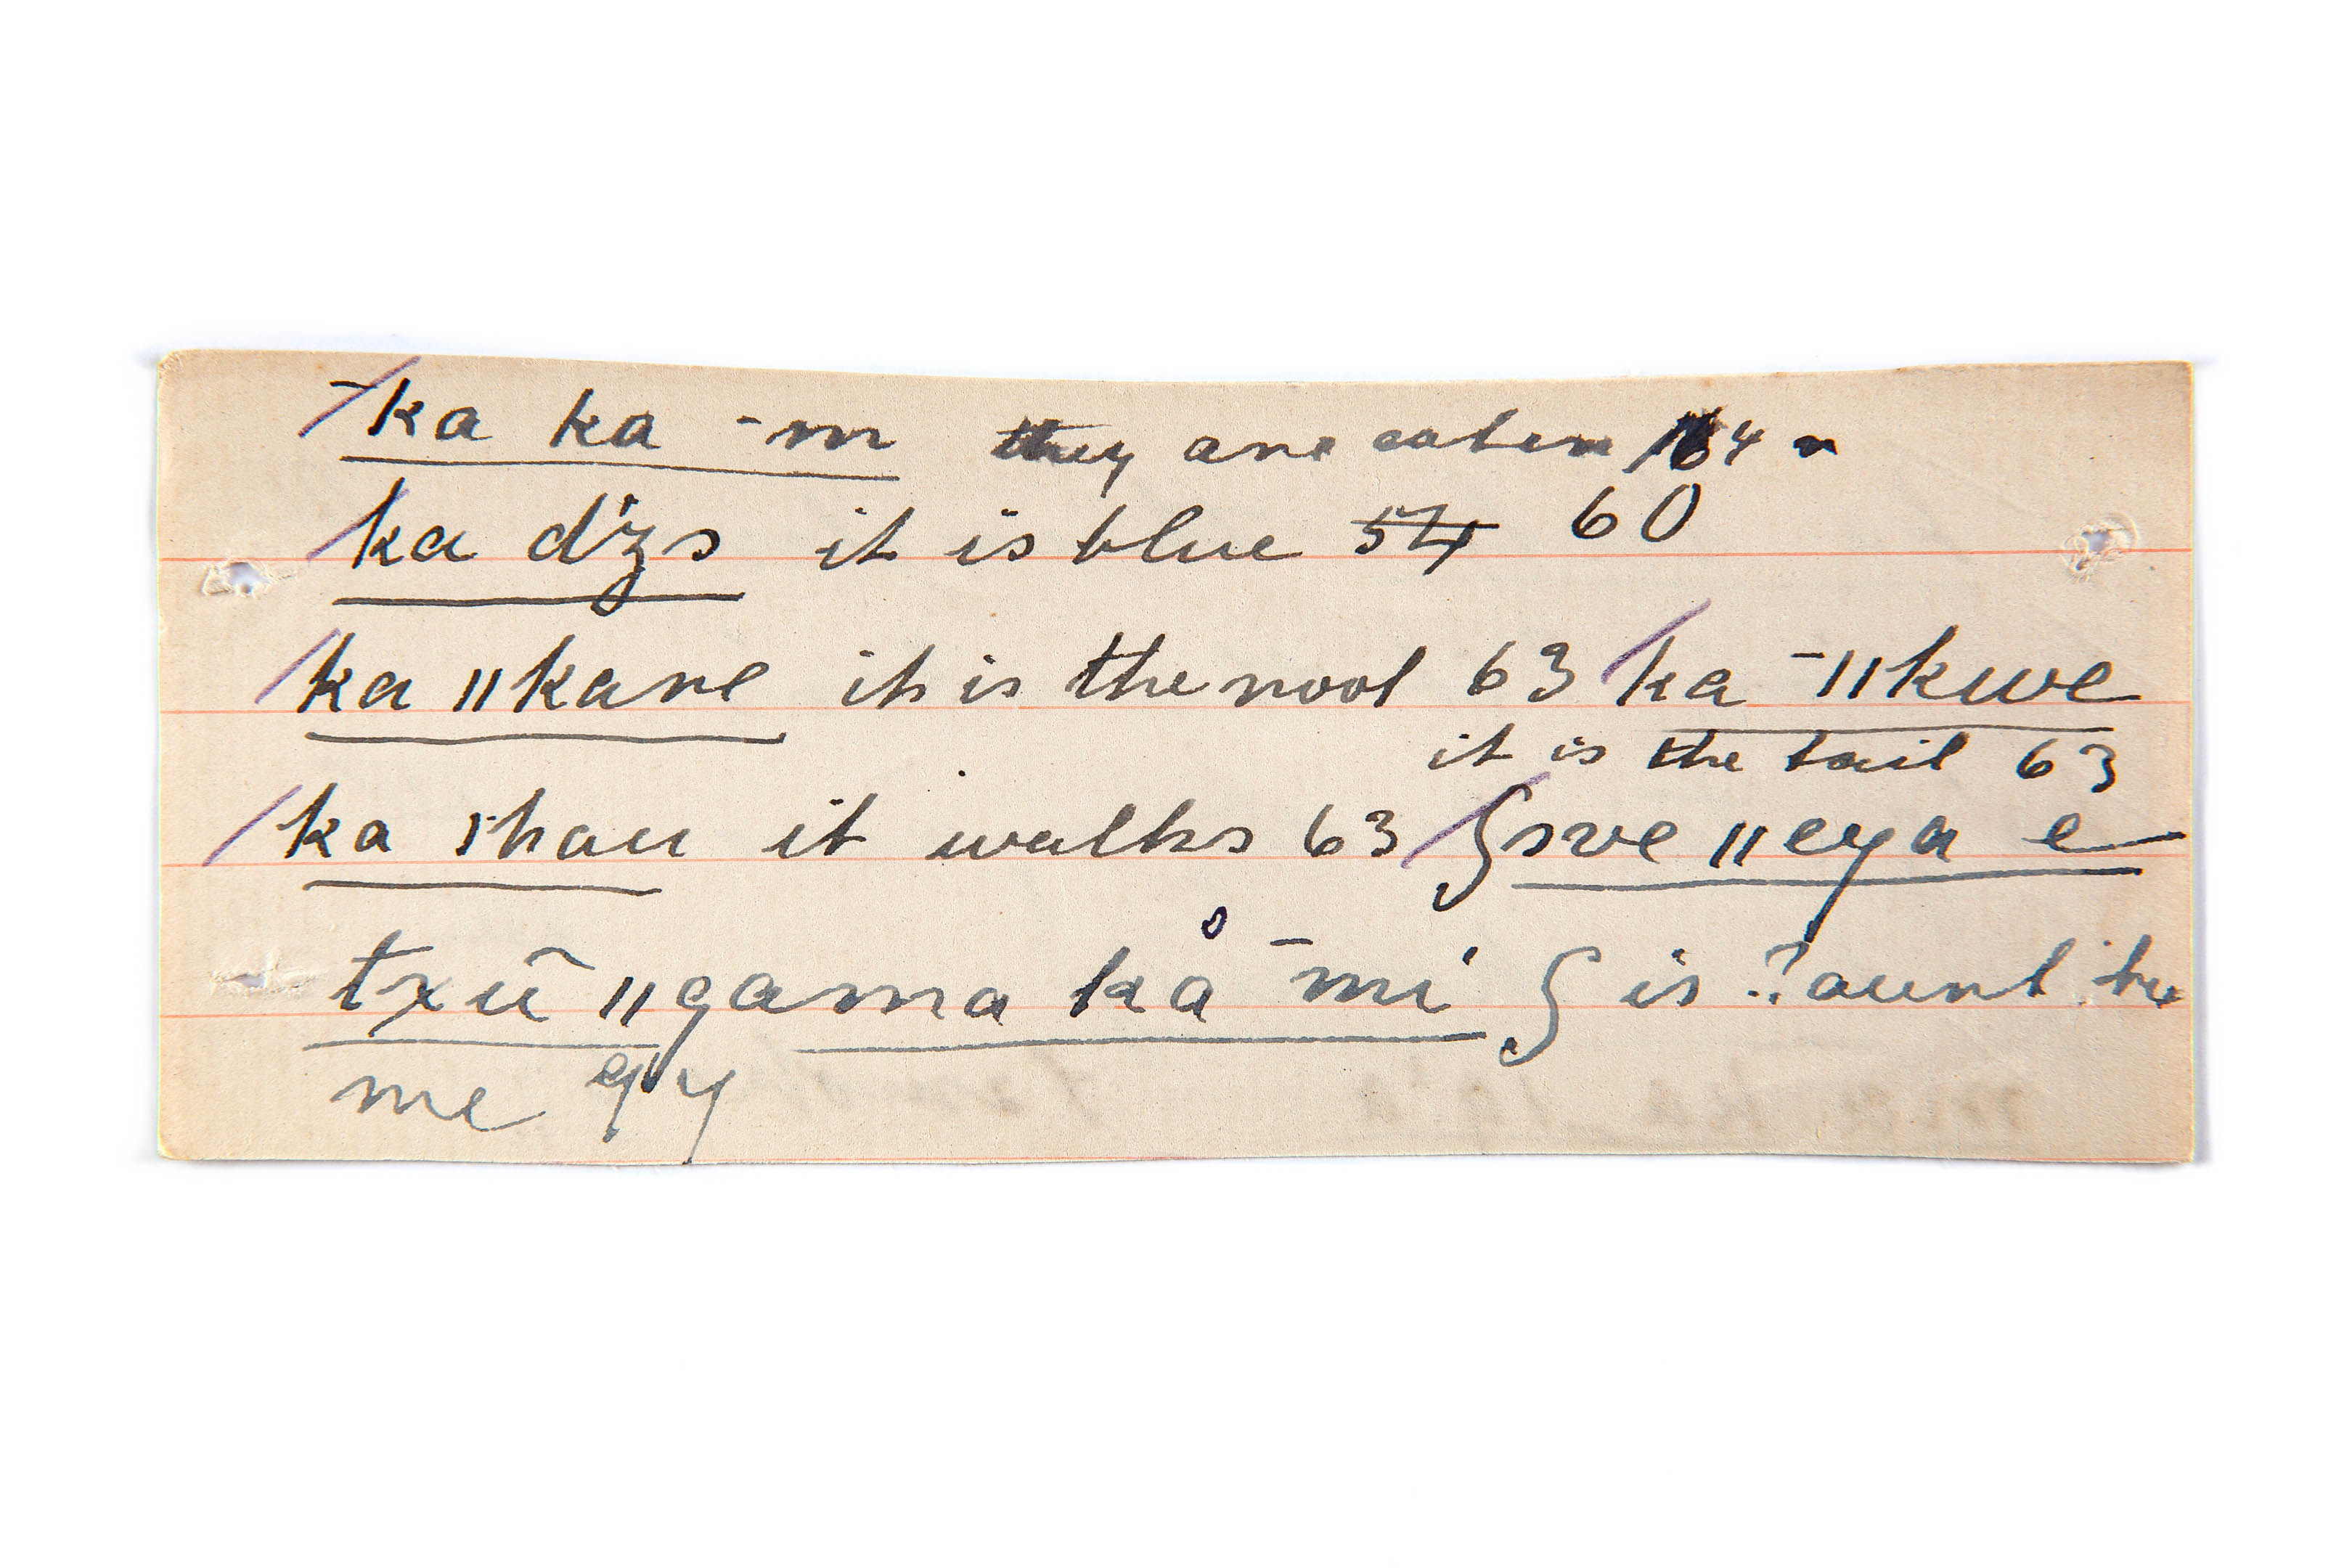 ka ka -m they are eaten 164
ka d'zs it is blue 54 60
ka ǁkane it is the root 63 ka -ǁkwe
it is the tail 63
ka ʃhau it walks 63 sve ǁeya e
txũ ǁgama kå -mi' is ? aunt to
me